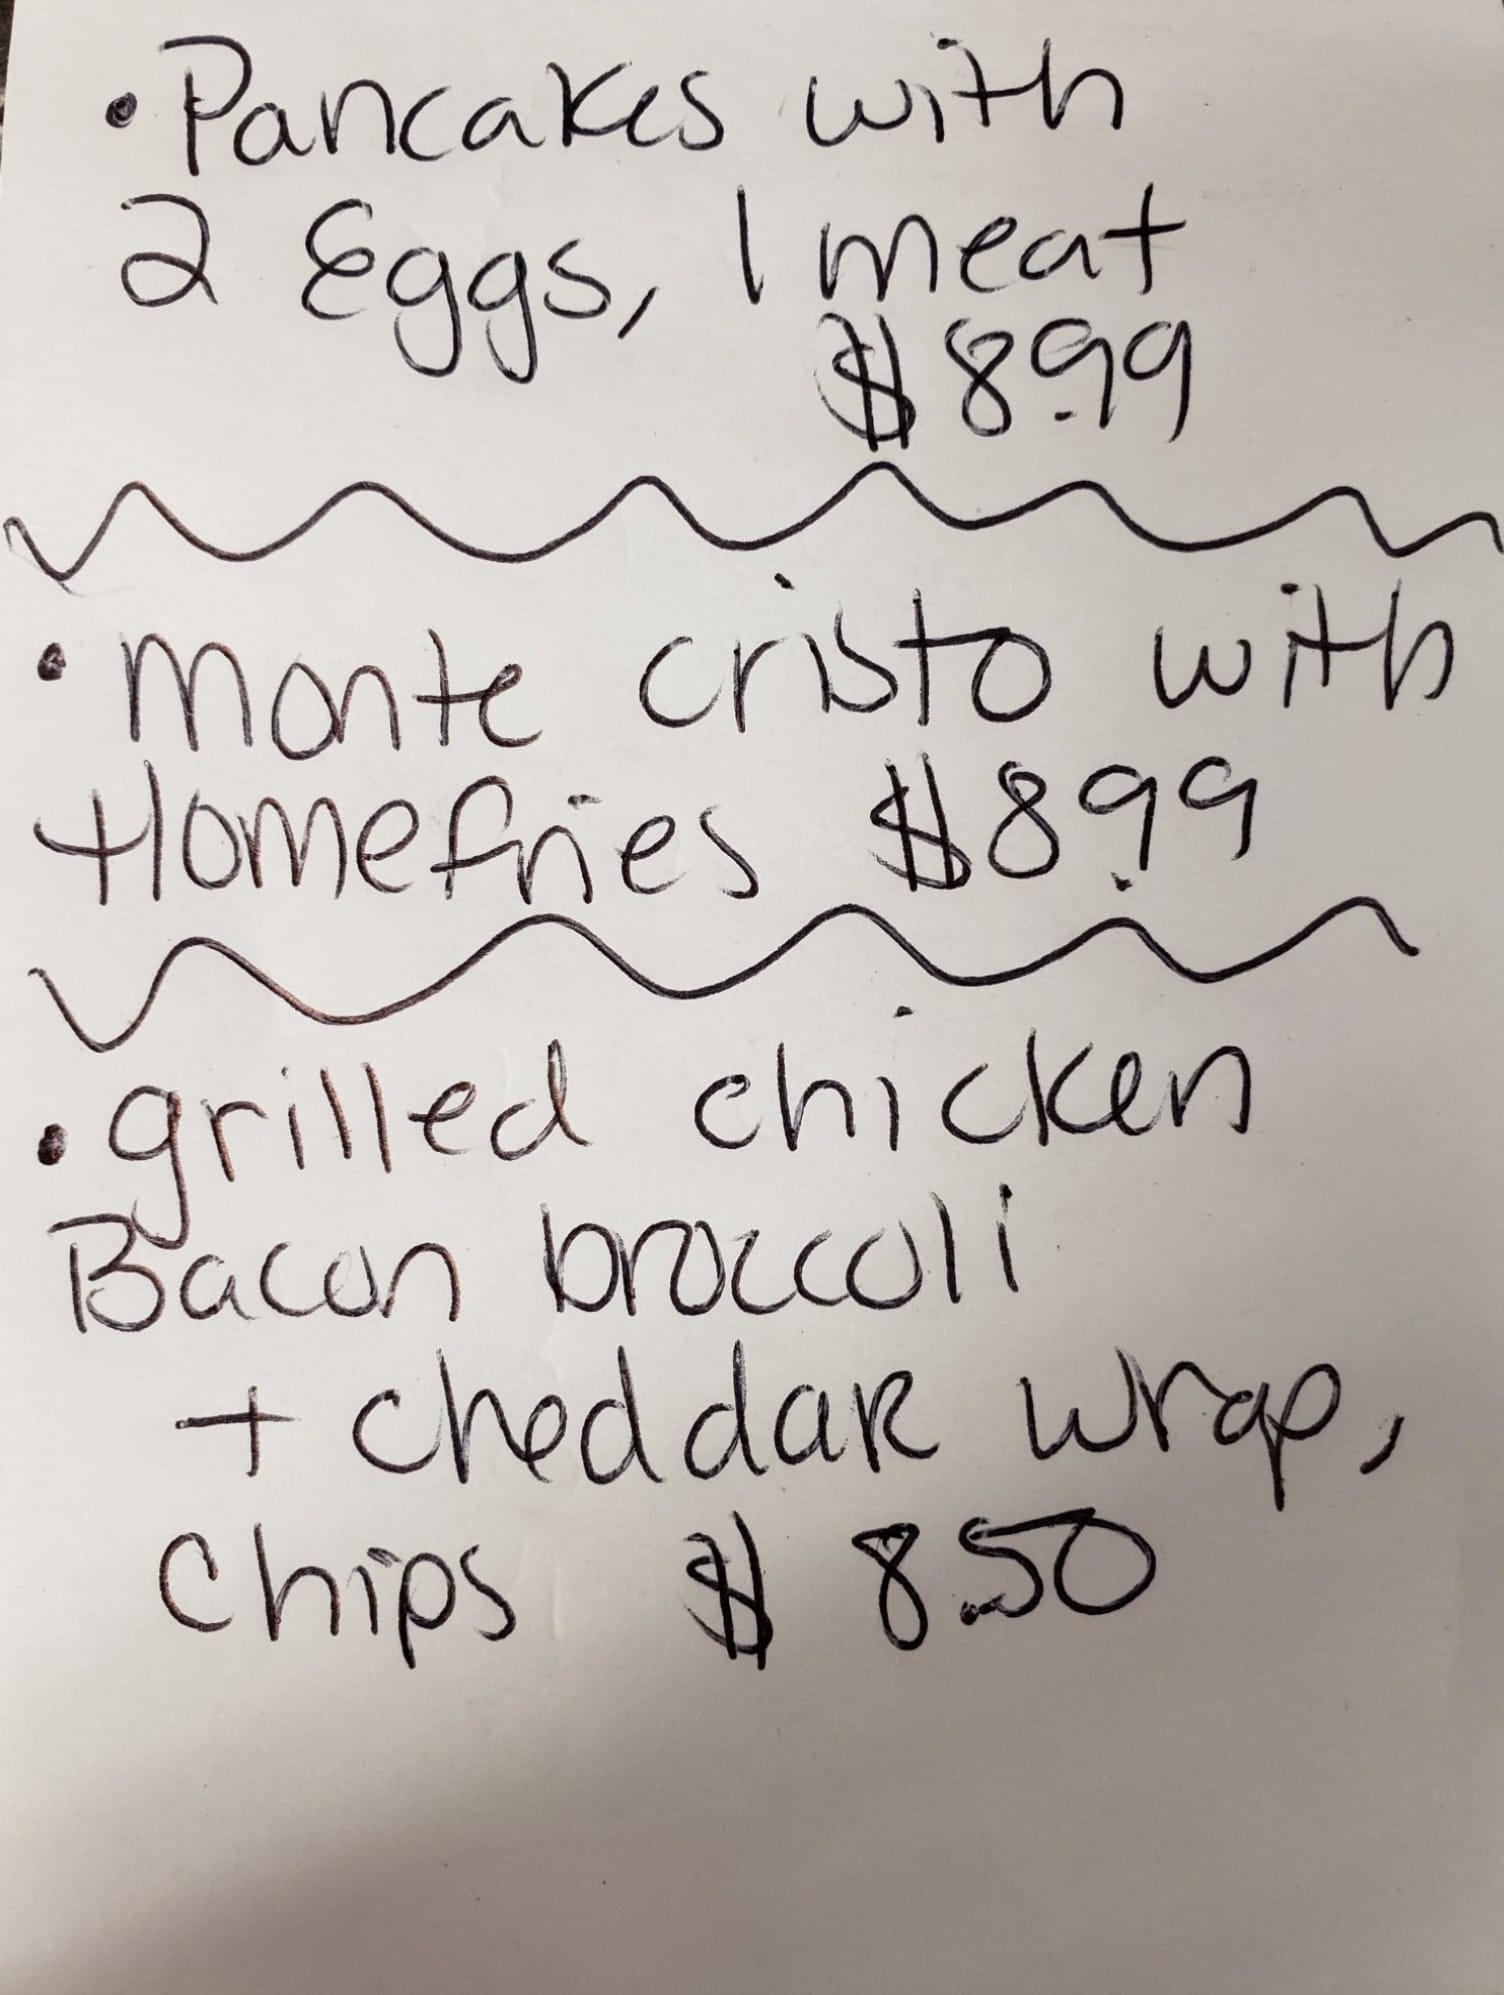 • Pancakes with
2 Eggs, 1 meat
$8.99
• monte cristo with
Homefries $8.99
• grilled chicken
Bacon broccoli
+ cheddar wrap,
Chips $ 8.50